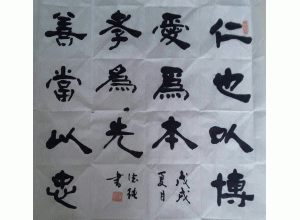 仁也以博
愛爲本
善當以忠
孝爲先
戊戌
夏月
書